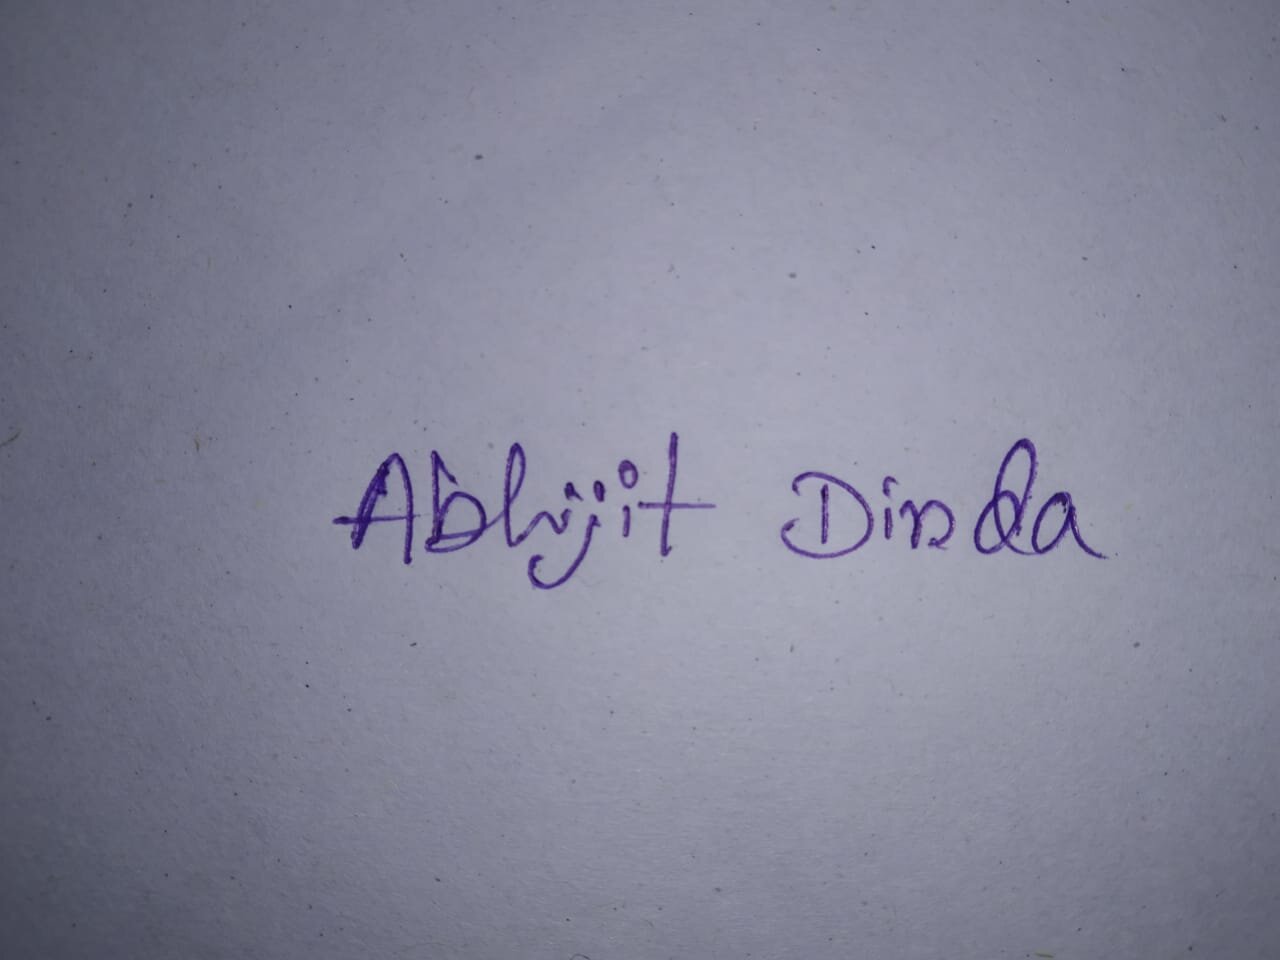 Abhijit Dinda